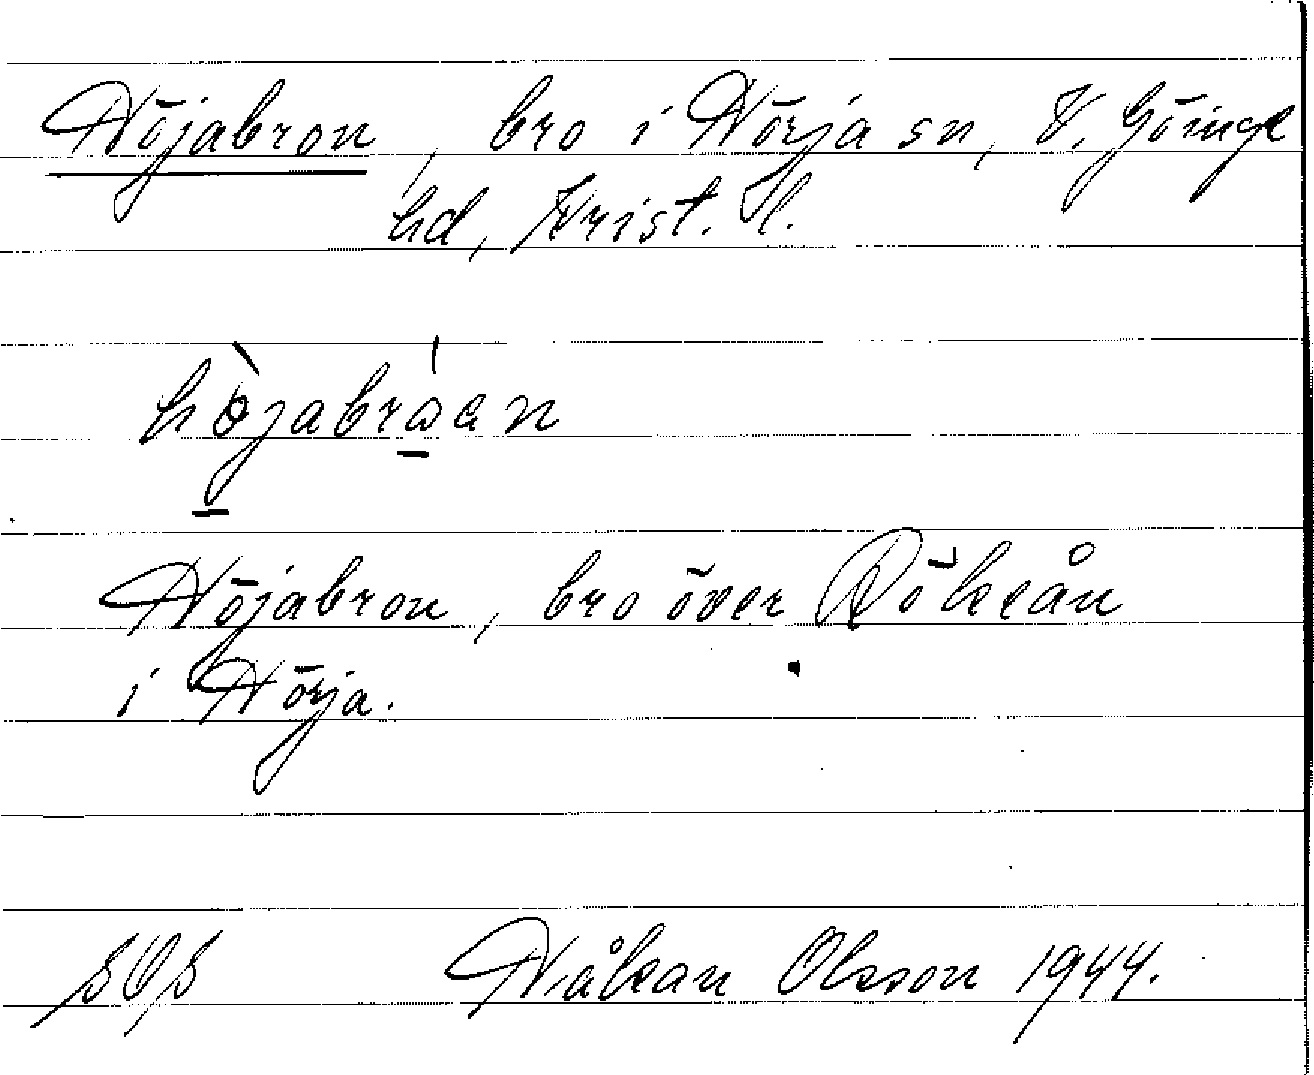 Höjabron, bro i Hörja sn, V. Göinge
hd, Krist. l.
höjabroen
Höjabron, bro över Rökeån
i Hörja.
Håkan Olsson 1944.